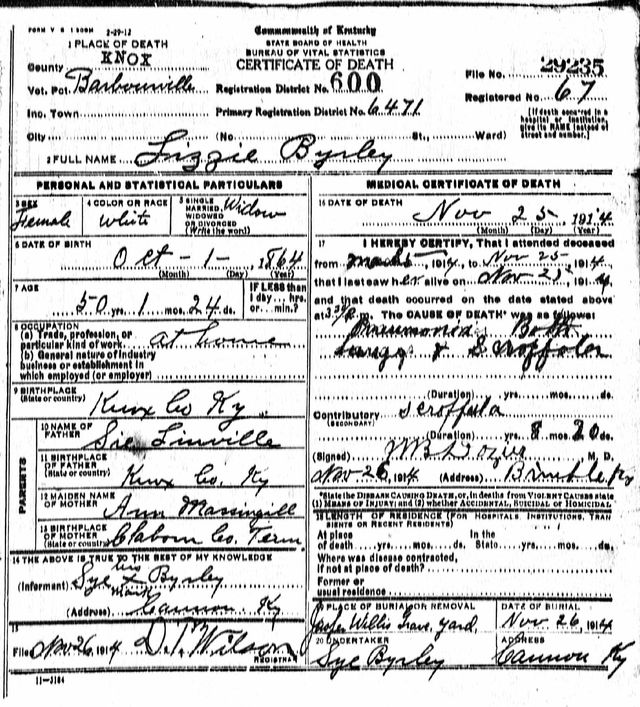 FORM V S 1 2-29-12
Commonwealth of Kentucky
STATE BOARD OF HEALTH
BUREAU OF VITAL STATISTICS
CERTIFICATE OF DEATH
1 PLACE OF DEATH
County KNOX
Vot. Pct. Barbourville
Inc. Town
City (No. St., Ward)
Registration District No. 600
Primary Registration District No. 6471
File No. 29235
Registered No. 67
[If death occurred in a
hospital or institution
give its NAME instead of
street and number.]
2 FULL NAME Lizzie Byrley
PERSONAL AND STATISTICAL PARTICULARS
3 SEX Female
4 COLOR OR RACE White
5 SINGLE MARRIED, WIDOWED OR DIVORCED (Write the word) Widow
6 DATE OF BIRTH Oct - 1 - 1864
(Month) (Day) (Year)
7 AGE 50 yrs. 1 mos. 24 ds.
IF LESS than 1 day.... hrs. or.... min.?
8 OCCUPATION
(a) Trade, profession, or
particular kind of work at home
(b) General nature of industry
business or establishment in
which employed (or employer)
9 BIRTHPLACE
(State or country) Knox Co Ky.
PARENTS
10 NAME OF FATHER Linville
11 BIRTHPLACE OF FATHER (State or country) Knox Co. Ky
12 MAIDEN NAME OF MOTHER Ann Massingill
13 BIRTHPLACE OF MOTHER (State or country) Claborn Co. Tenn
14 THE ABOVE IS TRUE TO THE BEST OF MY KNOWLEDGE
(Informant) Sye his x mark Byrley
(Address) Cannon Ky
15
Filed Nov 26, 1914 D. T. Wilson
REGISTRAR
11-3184
MEDICAL CERTIFICATE OF DEATH
16 DATE OF DEATH
Nov 25 1914
(Month) (Day) (Year)
17 I HEREBY CERTIFY, That I attended deceased
from 1914, to Nov 25, 1914,
that I last saw her alive on Nov 1914,
and that death occurred on the date stated above
at m. The CAUSE OF DEATH* was as follows:
Pneumonia Both
Lungs &
(Duration) yrs. mos. ds.
Contributory scroffula
(SECONDARY)
(Duration) yrs. 8 mos. 20 ds.
(Signed) M. D.
Nov 26, 1914 (Address) Ky
*State the DISEASE CAUSING DEATH, or, in deaths from VIOLENT CAUSES state
(1) MEANS OF INJURY; and (2) whether ACCIDENTAL, SUICIDAL or HOMICIDAL
18 LENGTH OF RESIDENCE (FOR HOSPITALS, INSTITUTIONS, TRAN
SIENTS OR RECENT RESIDENTS)
At place In the
of death yrs. mos. ds. State yrs. mos. ds.
Where was disease contracted,
if not at place of death?
Former or
usual residence
19 PLACE OF BURIAL OR REMOVAL Willis Grave yard.
DATE OF BURIAL Nov. 26, 1914
20 UNDERTAKER Sye Byrley
ADDRESS Cannon Ky